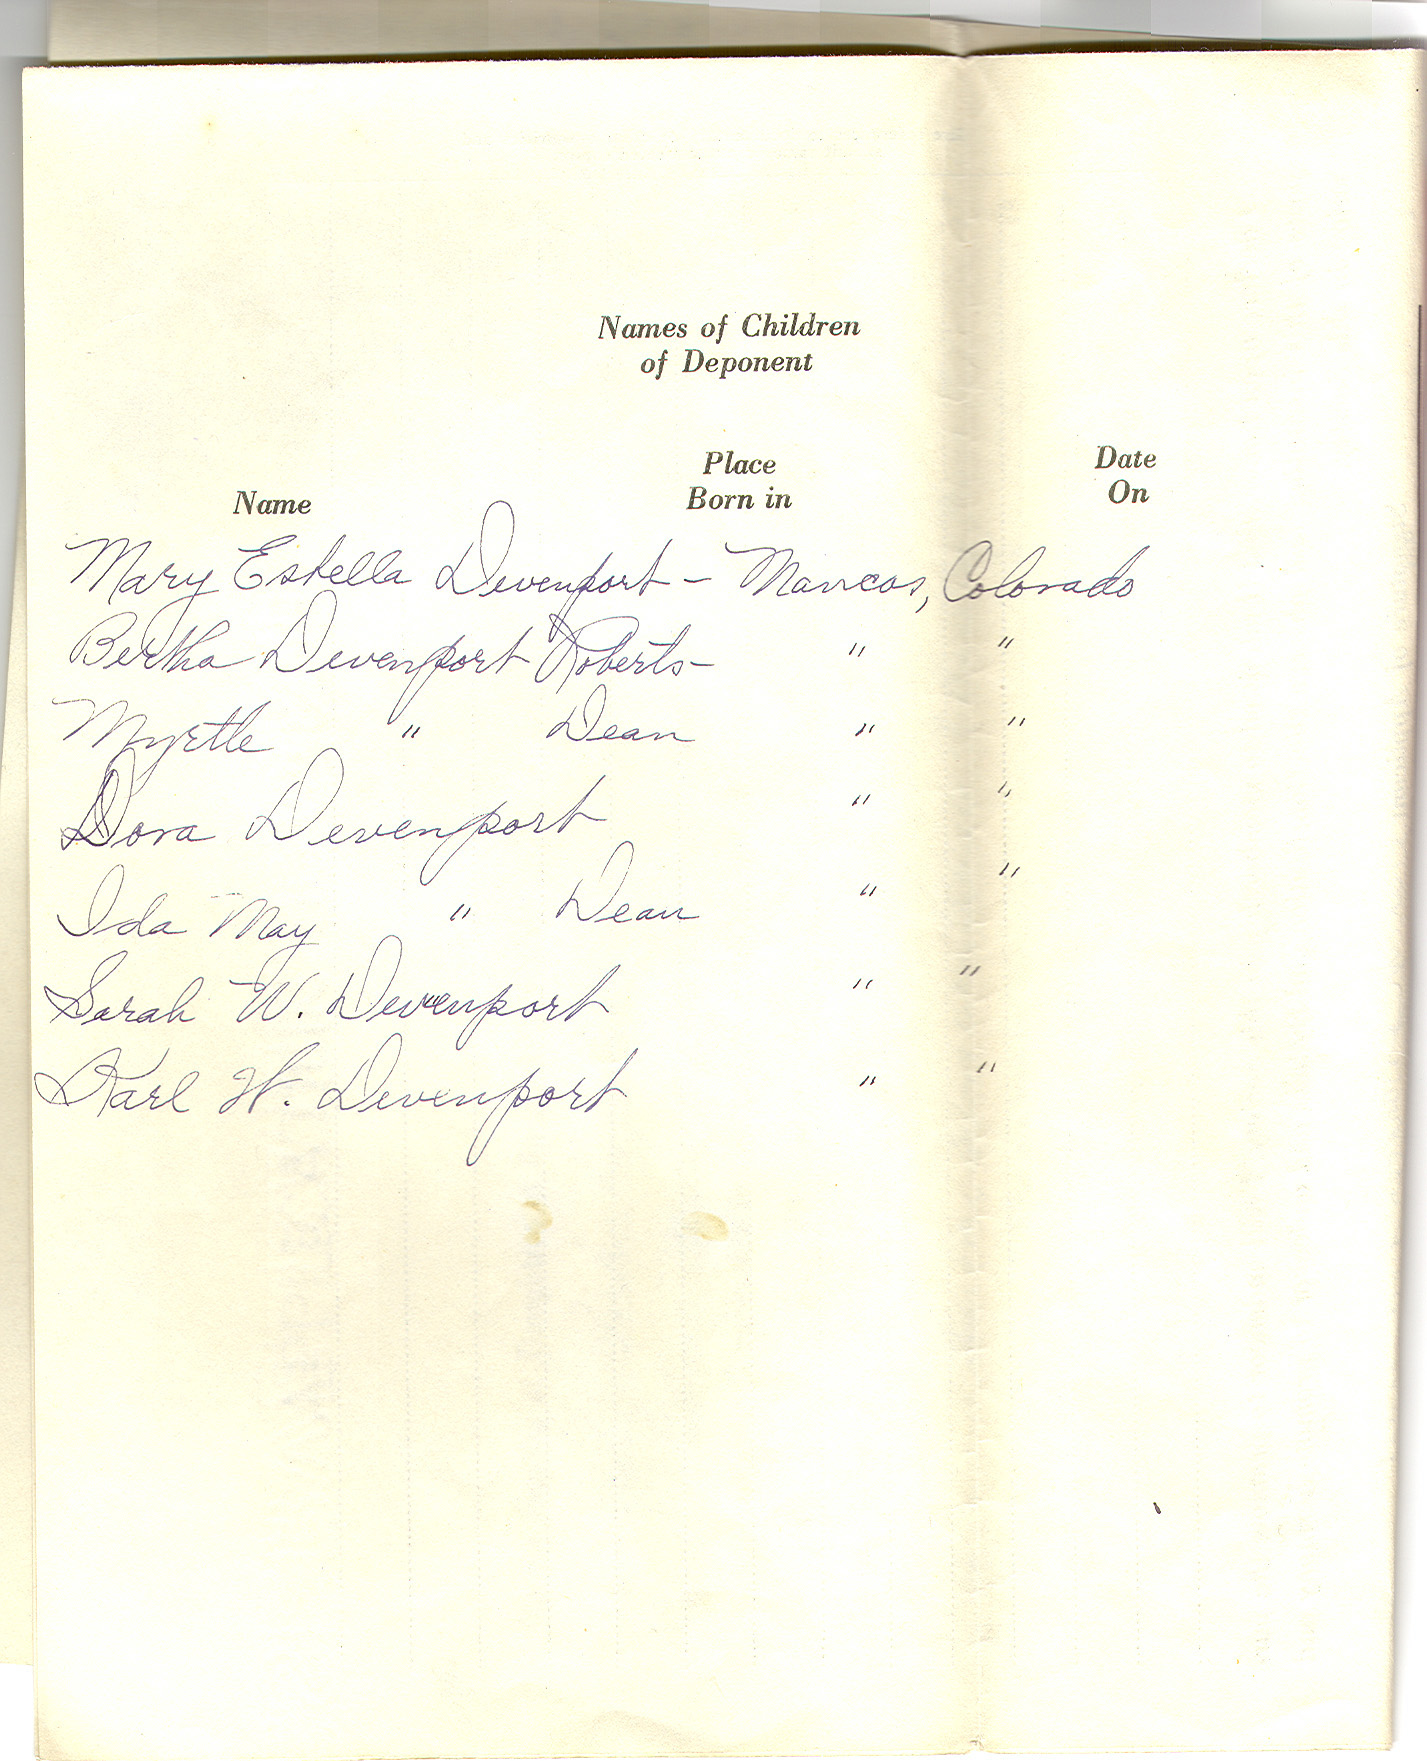 Names of Children
of Deponent
Place Date
Name Born in On
Mary Estella Devenport – Mancos, Colorado
Bertha Devenport Roberts – " "
Myrtle " Dean " "
Dora Devenport " "
Ida May " Dean " "
Sarah W. Devenport " "
Karl W. Devenport " "